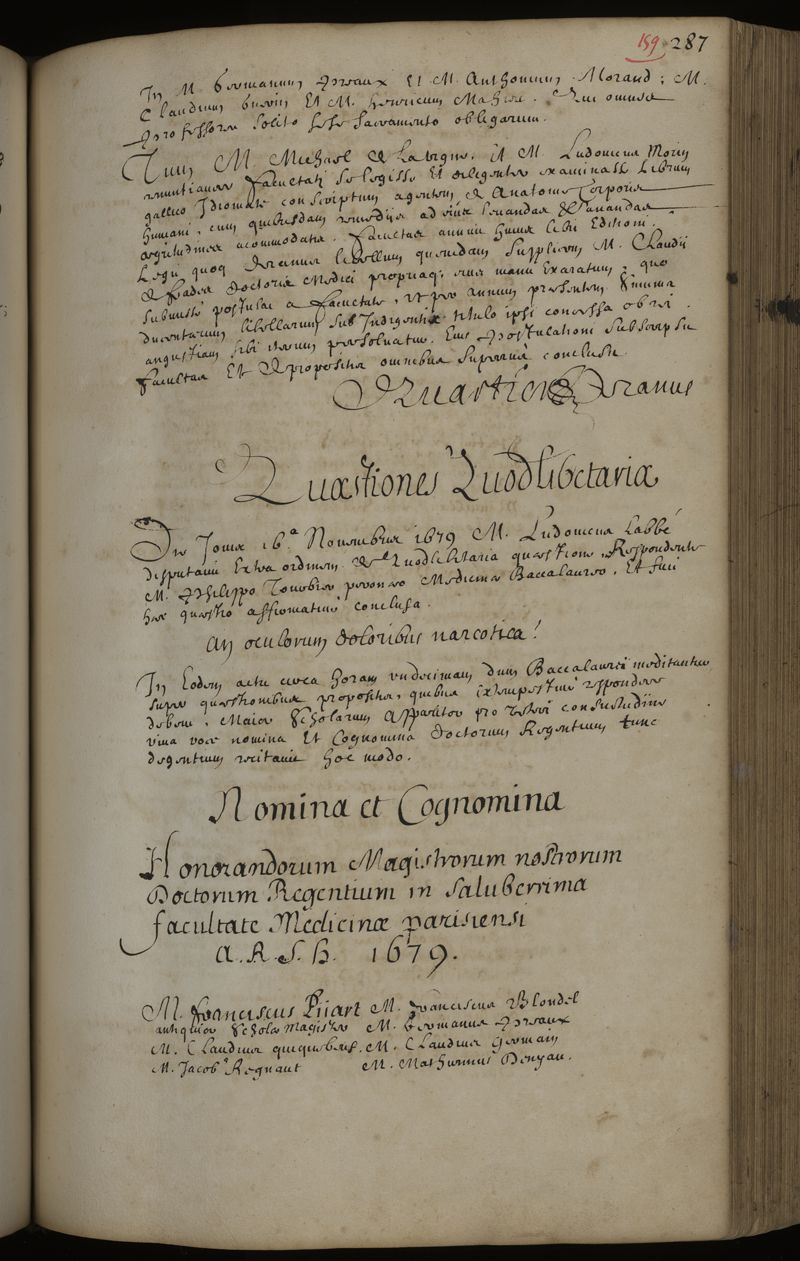 159 287
In M. Germanum Preaux Et M. Anthonium Morand; M.
Claudium Guerin Et M. Henricum Mahieu. Qui omnes
Professores solito sese Sacramento obligarunt.
Tum M. Michael de La vigne, et M. Ludovicus Morin
renuntiavere facultati se legisse Et diligenter examinasse Librum
gallico Idiomate conscriptum agentem de Anatome Corporis
humani, cum quibusdam remediis ad eius Levandas
aegritudines acommodatis. facultas annuit huius libri Editioni.
Legit quoque Decanus libellum quemdam Supplicem M. Claudii
doctoris Medici propriaque eius manu Exaratum; quo
Submisse postulat a facultate, ut per annum presentem Summa
ducentarum libellarum Sub Indigentiae titulo ipsi concessa ob rei
angustiam sibi iterum persolvatur. Eius Postulationi Subscripsit
facultas Et de propositis omnibus Supremis conclusit.
Decanus
Quæstiones Quodlibetariæ
Die Jovis 16ª. Novembris 1679 M. Ludovicus Labbé
disputavit Extra ordinem de Quodlibetaria quæstione, Respondente
M. Philippo Medicinæ Baccalaureo. Et fuit
hæc quæstio affirmative conclusa.
An oculorum doloribus narcotica?
In Eodem actu circa horam undecimam dum Baccalaurei meditantur
super quæstionibus propositis, quibus Extempestive respondere
debent, Maior Scholarum Apparitor pro veteri consuetudine
viva voce nomina Et Cognomina doctorum Regentium tunc
degentium recitavit hoc modo.
Nomina et Cognomina
Honorandorum Magistrorum nostrorum
Doctorum Regentium in saluberrima
facultate Medicinæ parisiensi
A. R. S. H. 1679.
M. franciscus Pijart M. franciscus Blondel
antiquior Scholæ Magister M. Germanus Preaux
M. Claudius quiquebeuf. M. Claudius Germain
M. Jacobus Regnaut M. Mathurinus Denyau.